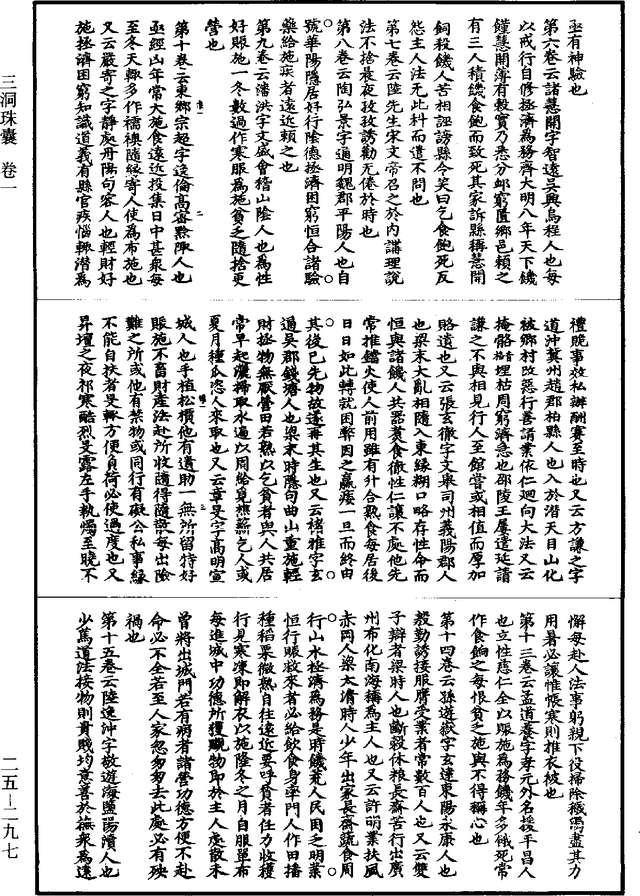 三洞珠囊 卷一
二五—二九七
亟有神驗也
第六卷云諸慧開字智遠吳興烏程人也每
以戒行自修拯濟為務齊大明八年天下饑
饉慧開薄有穀實乃悉分邮窮匱鄉邑賴之
有三人積饑食飽而致死其家訴縣稱慧開
飼殺饑人苦相誣謗縣令笑曰乞食飽死反
怨主人法无此科而遣不問也
第七卷云陸先生宋文帝召之於內講理說
法不捨晨夜孜孜誘勸无倦於時也
第八卷云陶弘景字通明魏郡平陽人也自
號華陽隱居好行陰德拯濟困窮恒合諸驗
藥給施疾者遠近賴之也
第九卷云潘洪字文盛會稽山陰人也為性
好賑施一冬數過作寒服為施貧乏隨捨更
營也
第十卷云東鄉宗超字逸倫高密黔陬人也
亟經山年常大施食遠近投集日中甚眾每
至冬天輒多作襦襖隨緣寄人使為布施也
又云嚴寄之字靜處丹陽句容人也輕財好
施拯濟困窮知識道義有縣官疾惱輒潛為
禮晚事效私辦酬賽至時也又云方謙之字
道沖冀州趙郡柏縣人也入於潛天目山化
被鄉村改惡行善請業依仁迴向大法又云
掩骼埋枯周窮濟急也邵陵王屢遣延請
謙之不與相見行人至館嘗或相值而厚加
賂遺也又云張玄徹字文舉司州義陽郡人
也梁末大亂相隨入東緣糊口略存性命而
恒與諸饑人共器煮食徹性仁讓不處他先
常推鑪火使人前用雖有升合熟食每居後
日日如此轉就困弊因之羸瘦一旦而終由
其後已先物故遂再其生也又云褚雅字玄
通吳郡錢塘人也梁末時隱句曲山重施輕
財拯物無厭營田若熟以乞貧者與人共居
常早起灑掃取水遍以周給見樵蘇乞人或
夏月種瓜恣人來取也又云章旻字高明宣
城人也手植松檟他有遺助一無所留恃好
賑施不畜財產法赴所收隨得隨散每出險
難之所或他有禁物或同行有礙公私事緣
不能自扶者旻輒方便負荷必使過度也又
昇壇之夜祁寒酷烈旻露左手執燭至曉不
懈每赴人法事躬親下役掃除穢漏盡其力
用暑必讓惟帳寒則推衣被也
第十三卷云孟道養字孝元外名援平昌人
也立性慈仁全以賑施為務饑年多餓死常
作食餉之每恨貧之施與不得稱心也
第十四卷云孫遊嶽字玄達東陽永康人也
教勤誘接服膺受業者常數百人也又云雙
子辯者梁時人也斷穀休粮長齋苦行出廣
州布化南海稱為主人也又云許明業扶風
赤岡人梁太清時人少年出家長齋蔬食周
行山水拯濟為務是時饑荒人民困之明業
恒行賑救來者必給飲食身率門人作田播
種稻粟微熟自往遠近要呼貧者任力收穫
行見寒凍即解衣以施隆冬之月自服單布
每進城中功德所獲䞋物即於主人處散未
曾將出城門若有病者諸營功德方便不赴
命必不全若至人家忽匆匆去此處必有殃
禍也
第十五卷云陸逸沖字敬遊海鹽陽濱人也
少篤道法接物則貴賤均意善於撫眾為遠